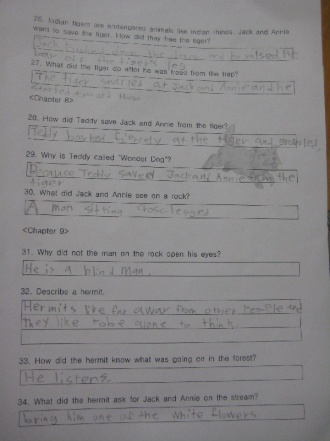 26. Indian tigers are endangered animals like Indian rhinos. Jack and Annie
want to save the tiger. How did they free the tiger?
Jack and
the tiger's leg
27. What did the tiger do after he was freed from the trap?
The tiger snarled at Jack and Annie and he
started toward them
<Chapter 8>
28. How did Teddy save Jack and Annie from the tiger?
Teddy barked fiercely at the tiger and growled
29. Why is Teddy called "Wonder Dog"?
Because Teddy saved Jack and Annie from the
tiger
30. What did Jack and Annie see on a rock?
A man sitting cross-legged
<Chapter 9>
31. Why did not the man on the rock open his eyes?
He is a blind man.
32. Describe a hermit.
Hermits live far away from other people and
they like to be alone to think.
33. How did the hermit know what was going on in the forest?
He listens
34. What did the hermit ask for Jack and Annie on the stream?
bring him one of the white flowers